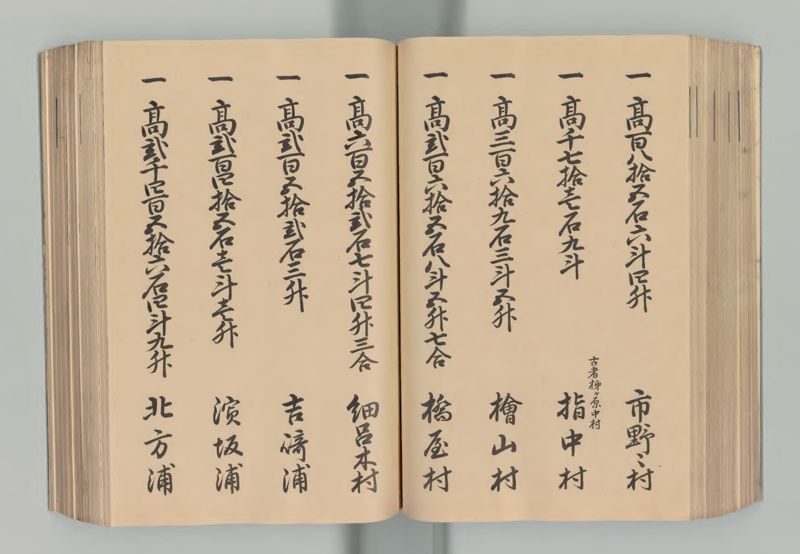 一 高百八拾五石六斗四升 市野々村
一 高千七拾壱石九斗 指中村
古者柳ヶ原中村
一 高三百六拾九石三斗五升 檜山村
一 高弐百六拾五石八斗五升七合 橋屋村
一 高六百五拾弐石七斗四升三合 細呂木村
一 高弐百五拾弐石三升 吉崎浦
一 高弐百四拾五石壱斗壱升 濱坂浦
一 高弐千四百五拾六石四斗九升 北方浦